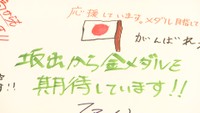 応援しています。メダル目指して
がんばれ
坂出から金メダルを
期待しています!!